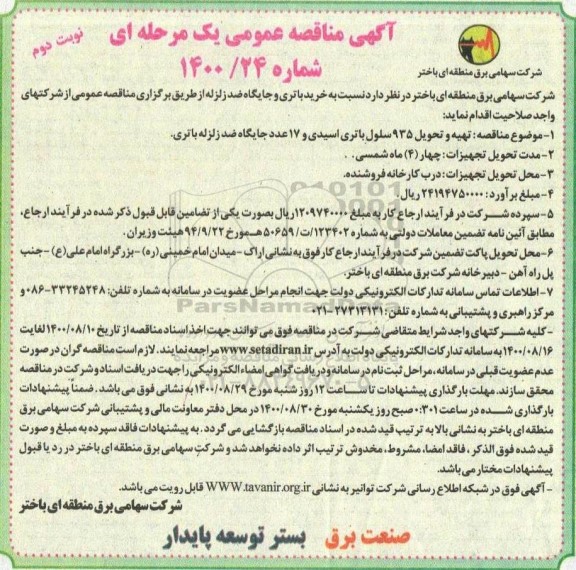 آگهی مناقصه عمومی یک مرحله ای
شماره ۲۴/ ۱۴۰۰
نوبت دوم
شرکت سهامی برق منطقه ای باختر
شرکت سهامی برق منطقه ای باختر در نظر دارد نسبت به خرید باتری و جایگاه ضد زلزله از طریق برگزاری مناقصه عمومی از شرکتهای
واجد صلاحیت اقدام نماید:
۱- موضوع مناقصه: تهیه و تحویل ۹۳۵ سلول باتری اسیدی و ۱۷ عدد جایگاه ضد زلزله باتری.
۲- مدت تحویل تجهیزات: چهار (۴) ماه شمسی.
۳- محل تحویل تجهیزات: درب کارخانه فروشنده.
۴- مبلغ برآورد: ۲۴۱۹۴۷۵۰۰۰۰ ریال.
۵- سپرده شرکت در فرآیند ارجاع کار به مبلغ ۱۲۰۹۷۴۰۰۰۰ ریال بصورت یکی از تضامین قابل قبول ذکر شده در فرآیند ارجاع،
مطابق آئین نامه تضمین معاملات دولتی به شماره ۱۲۳۴۰۲/ت/ ۵۰۶۵۹ هـ مورخ ۹۴/۹/۲۲ هیئت وزیران.
۶- محل تحویل پاکت تضمین شرکت در فرآیند ارجاع کار فوق به نشانی اراک - میدان امام خمینی (ره) - بزرگراه امام علی (ع) - جنب
پل راه آهن - دبیرخانه شرکت برق منطقه ای باختر.
۷- اطلاعات تماس سامانه تدارکات الکترونیکی دولت جهت انجام مراحل عضویت در سامانه به شماره تلفن: ۳۳۲۴۵۲۴۸-۰۸۶ و
مرکز راهبری و پشتیبانی به شماره تلفن: ۲۷۳۱۳۱۳۱-۰۲۱
- کلیه شرکتهای واجد شرایط متقاضی شرکت در مناقصه فوق می توانند جهت اخذ اسناد مناقصه از تاریخ ۱۴۰۰/۰۸/۱۰ لغایت
۱۴۰۰/۰۸/۱۶ به سامانه تدارکات الکترونیکی دولت به آدرس www.setadiran.ir مراجعه نمایند. لازم است مناقصه گران در صورت
عدم عضویت قبلی در سامانه، مراحل ثبت نام در سامانه و دریافت گواهی امضاء الکترونیکی را جهت دریافت اسناد و شرکت در مناقصه
محقق سازند. مهلت بارگذاری پیشنهادات تا ساعت ۱۲ روز شنبه مورخ ۱۴۰۰/۰۸/۲۹ به نشانی فوق می باشد. ضمناً پیشنهادات
بارگذاری شده در ساعت ۰۱:۳۰ صبح روز یکشنبه مورخ ۱۴۰۰/۰۸/۳۰ در محل دفتر معاونت مالی و پشتیبانی شرکت سهامی برق
منطقه ای باختر به نشانی بالا به ترتیب قید شده در اسناد مناقصه بازگشایی می گردد. به پیشنهادات فاقد سپرده به مبلغ و صورت
قید شده فوق الذکر، فاقد امضا، مشروط، مخدوش ترتیب اثر داده نخواهد شد و شرکت سهامی برق منطقه ای باختر در رد یا قبول
پیشنهادات مختار می باشد.
- آگهی فوق در شبکه اطلاع رسانی شرکت توانیر به نشانی WWW.tavanir.org.ir قابل رویت می باشد.
شرکت سهامی برق منطقه ای باختر
صنعت برق بستر توسعه پایدار
ParsNamadData